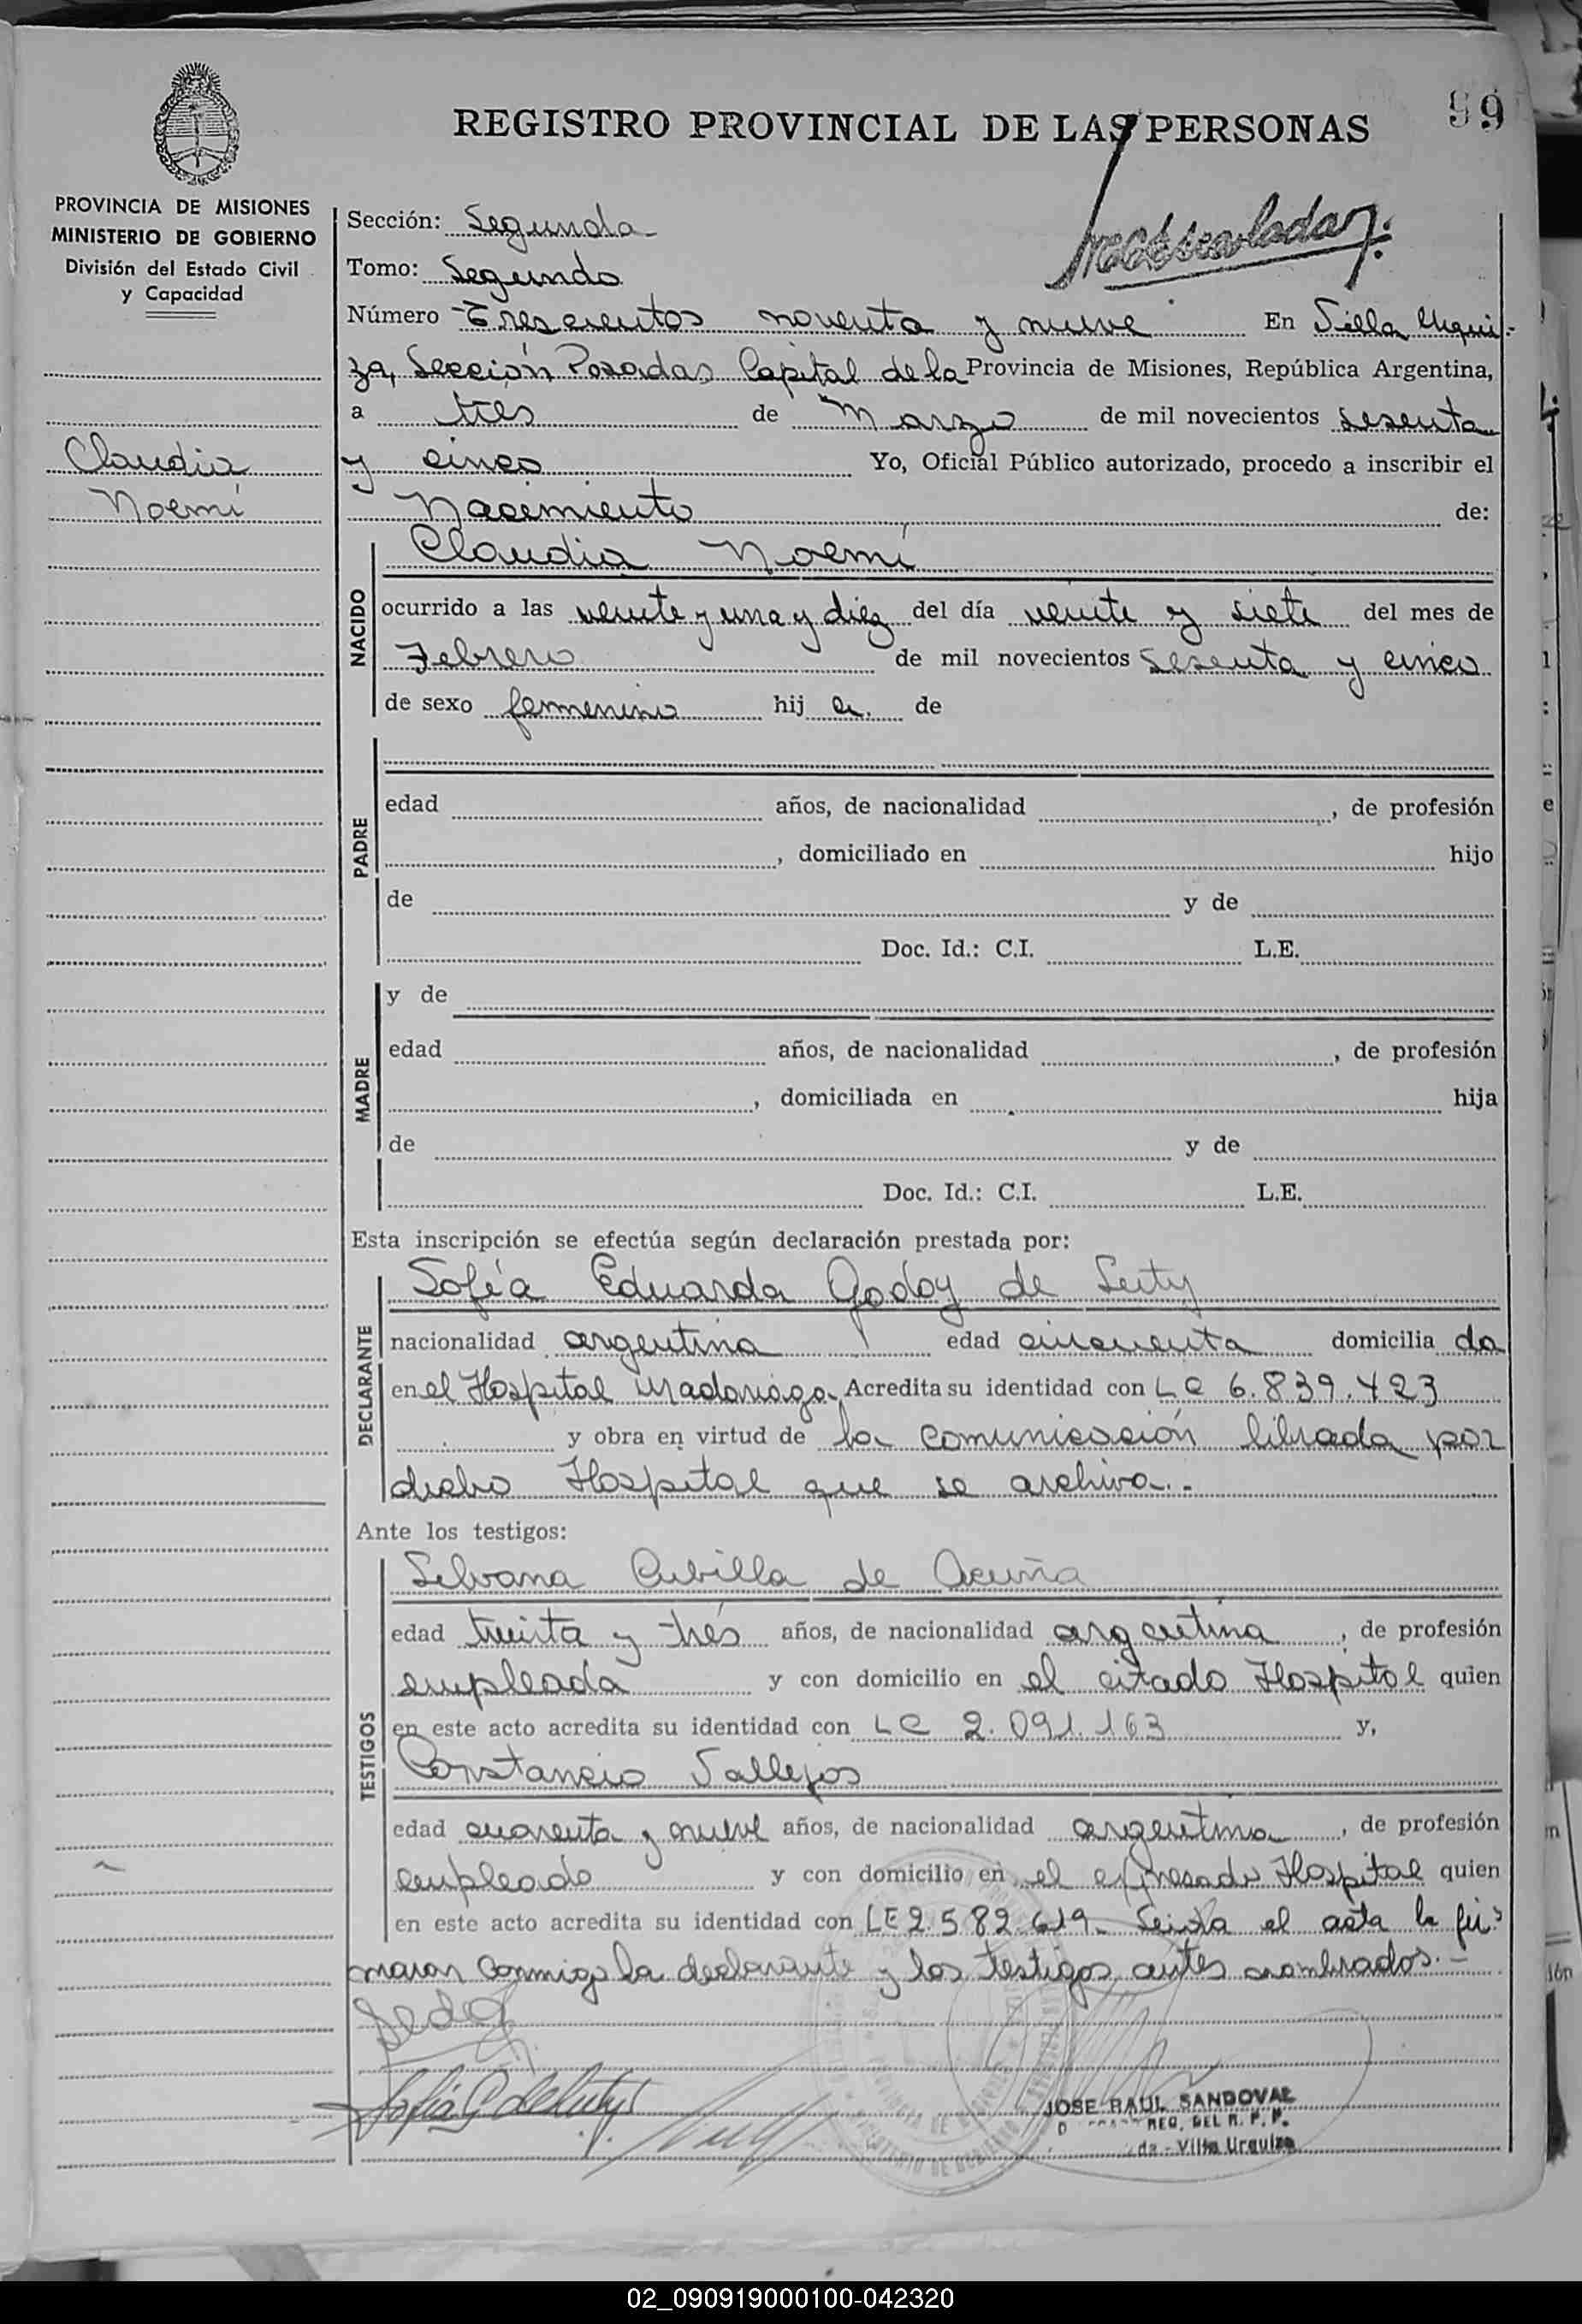 99
REGISTRO PROVINCIAL DE LAS PERSONAS
PROVINCIA DE MISIONES
MINISTERIO DE GOBIERNO
División del Estado Civil
y Capacidad
Claudia
Noemí
Sección: Segunda
Tomo: Segundo
Número Trescientos noventa y nueve En Villa Urqui-
za, Sección Posadas Capital de la Provincia de Misiones, República Argentina,
a tres de Marzo de mil novecientos sesenta
y cinco Yo, Oficial Público autorizado, procedo a inscribir el
Nacimiento de:
NACIDO
Claudia Noemí
ocurrido a las veinte y una y diez del día veinte y siete del mes de
Febrero de mil novecientos sesenta y cinco
de sexo femenino hij a. de
PADRE
edad años, de nacionalidad , de profesión
, domiciliado en hijo
de y de
Doc. Id.: C.I. L.E.
MADRE
y de
edad años, de nacionalidad , de profesión
, domiciliada en hija
de y de
Doc. Id.: C.I. L.E.
Esta inscripción se efectúa según declaración prestada por:
DECLARANTE
Sofía Eduarda Godoy de
nacionalidad argentina edad cincuenta domicilia da
en el Hospital Madariaga. Acredita su identidad con L C 6.839.423
y obra en virtud de la comunicación librada por
dicho Hospital que se archiva.-
Ante los testigos:
TESTIGOS
Silvana Cubilla de Acuña
edad treinta y trés años, de nacionalidad argentina , de profesión
empleada y con domicilio en el citado Hospital quien
en este acto acredita su identidad con L C 2.091.163 y,
Constancio Vallejos
edad cuarenta y nueve años, de nacionalidad argentina , de profesión
empleado y con domicilio en el expresado Hospital quien
en este acto acredita su identidad con LE 2.582.619. Leida el acta la fir-
maron conmigo la declarante y los testigos antes nombrados.-
JOSE RAUL SANDOVAL
REG. DEL R. P. P.
Villa Urquiza
02_090919000100-042320